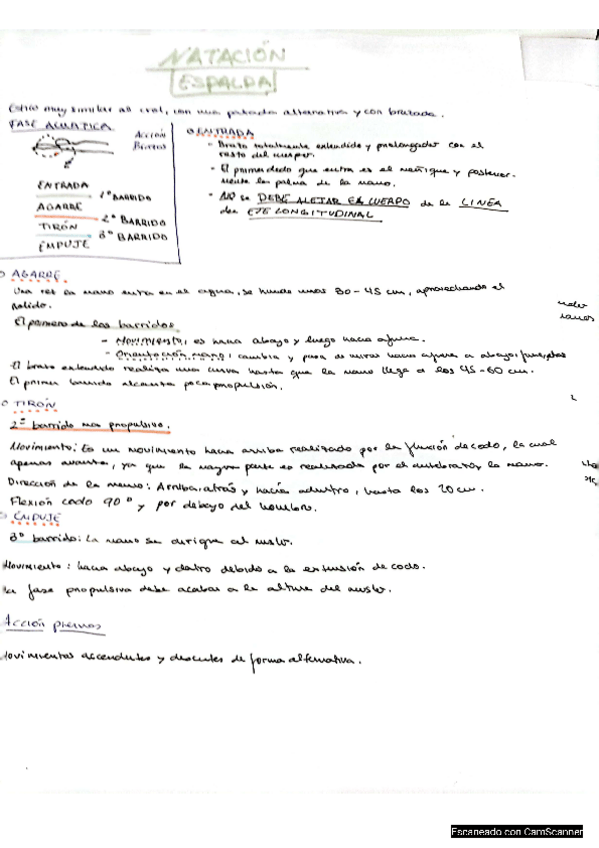 NATACIÓN
ESPALDA
Estilo muy similar al crol, con una patada alternativa y con brazada.
FASE ACUÁTICA
Acción
Brazos
ENTRADA
1º BARRIDO
AGARRE
2º BARRIDO
TIRÓN
3º BARRIDO
EMPUJE
ENTRADA
- Brazo totalmente extendido y prolongado con el
resto del cuerpo.
- El primer dedo que entra es el meñique y posterior-
mente la palma de la mano.
- No se DEBE ALEJAR EL CUERPO de la LINEA
del EJE LONGITUDINAL
AGARRE
Una vez la mano entra en el agua, se hunde unos 30-45 cm, aprovechando el
rolido.
El primero de los barridos
- Movimiento: es hacia abajo y luego hacia afuera.
- Orientación mano: cambia y pasa de mirar hacia afuera a abajo
El brazo extendido realiza una curva hasta que la mano llega a los 45-60 cm.
El primer barrido alcanza poca propulsión.
TIRÓN
2º barrido mas propulsivo.
Movimiento: Es un movimiento hacia arriba realizado por la flexión de codo, la cual
apenas avanza, ya que la mayor parte es realizada por el antebrazo y la mano.
Dirección de la mano: Arriba, atrás y hacia adentro, hasta los 20 cm.
Flexión codo 90º y por debajo del hombro.
EMPUJE
3º barrido: La mano se dirige al muslo.
Movimiento: hacia abajo y dentro debido a la extensión de codo.
La fase propulsiva debe acabar a la altura del muslo.
Acción piernas
Movimientos ascendentes y descentes de forma alternativa.
Escaneado con CamScanner